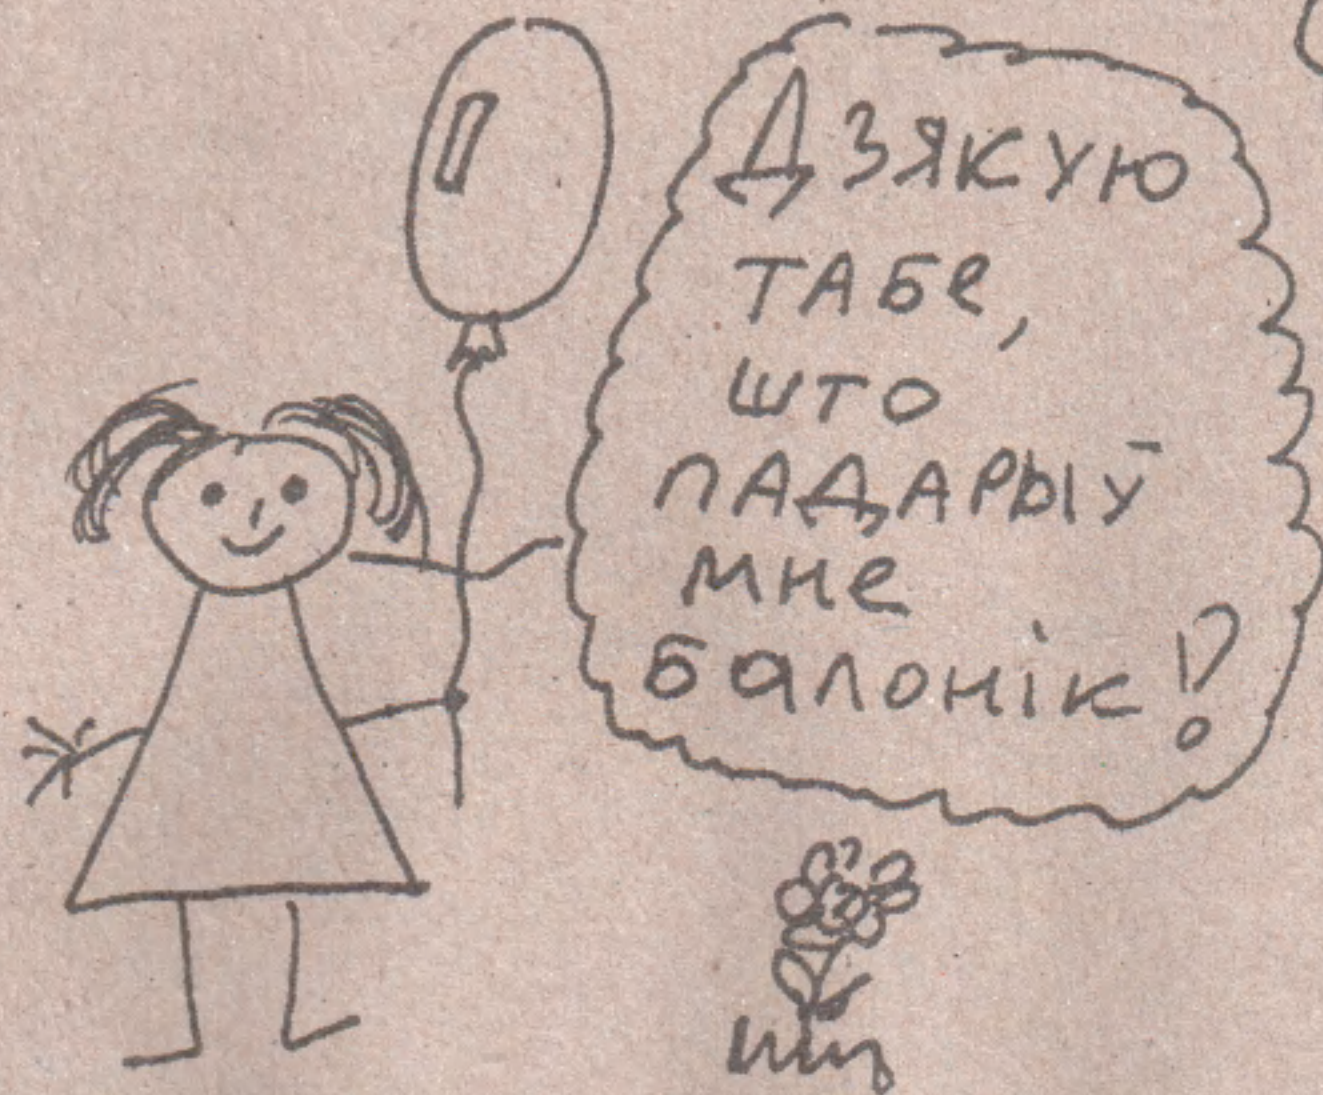 Дзякую
табе,
што
падарыў
мне
балонік!